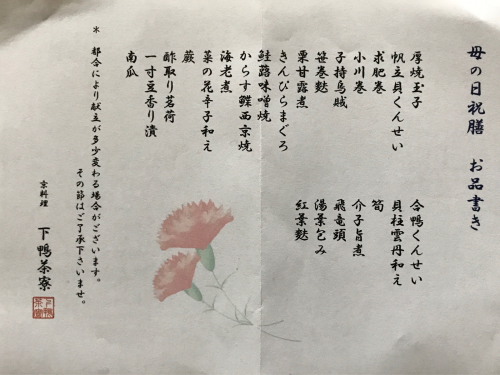 母の日祝膳 お品書き
厚焼玉子
帆立貝くんせい
求肥巻
小川巻
子持烏賊
笹巻麩
栗甘露煮
きんぴらまぐろ
鮭蕗味噌焼
からす鰈西京焼
海老煮
菜の花辛子和え
蕨
酢取り茗荷
一寸豆香り漬
南瓜
合鴨くんせい
貝柱雲丹和え
筍
介子旨煮
飛竜頭
湯葉包み
紅葉麩
* 都合により献立が多少変わる場合がございます。
その節はご了承下さいませ。
京料理
下鴨茶寮
下鴨茶寮